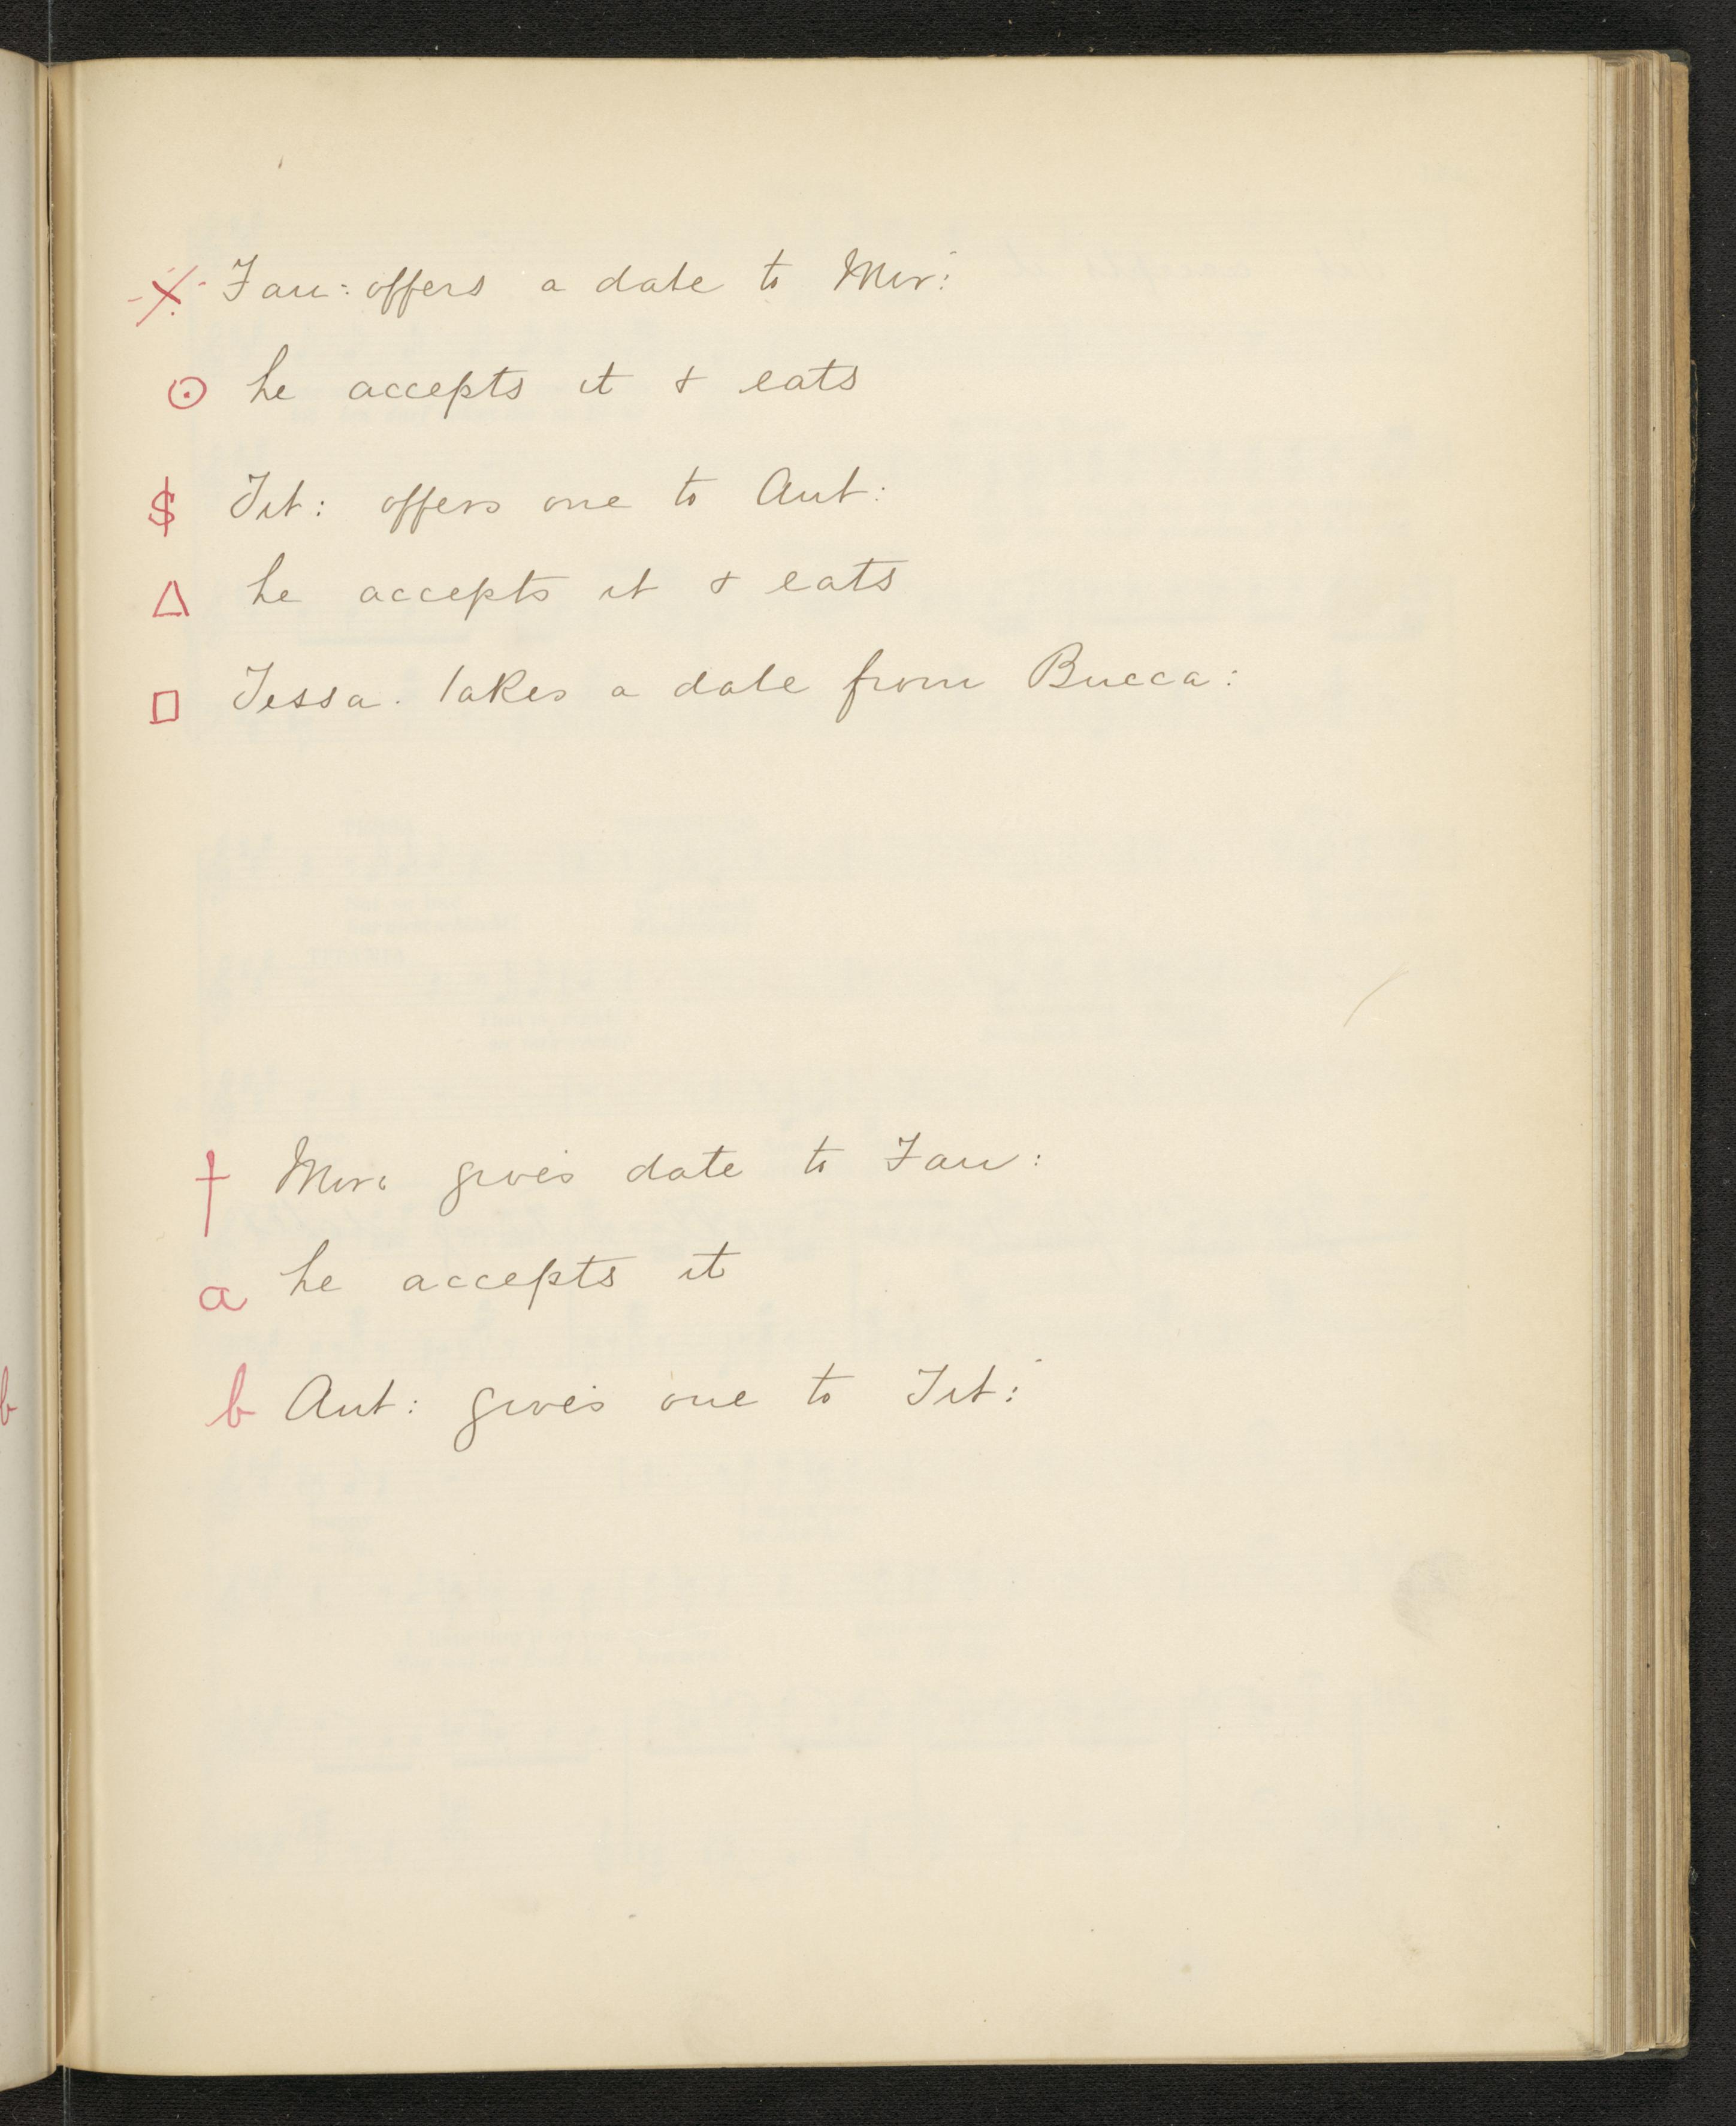 ※ Fau: offers a date to Mir:
⊙ he accepts it & eats
$ Tit: offers one to Aut:
△ he accepts it & eats
□ Tessa. takes a date from Bucca:
† Mir: gives date to Fau:
a he accepts it
b Aut: gives one to Tit:
b